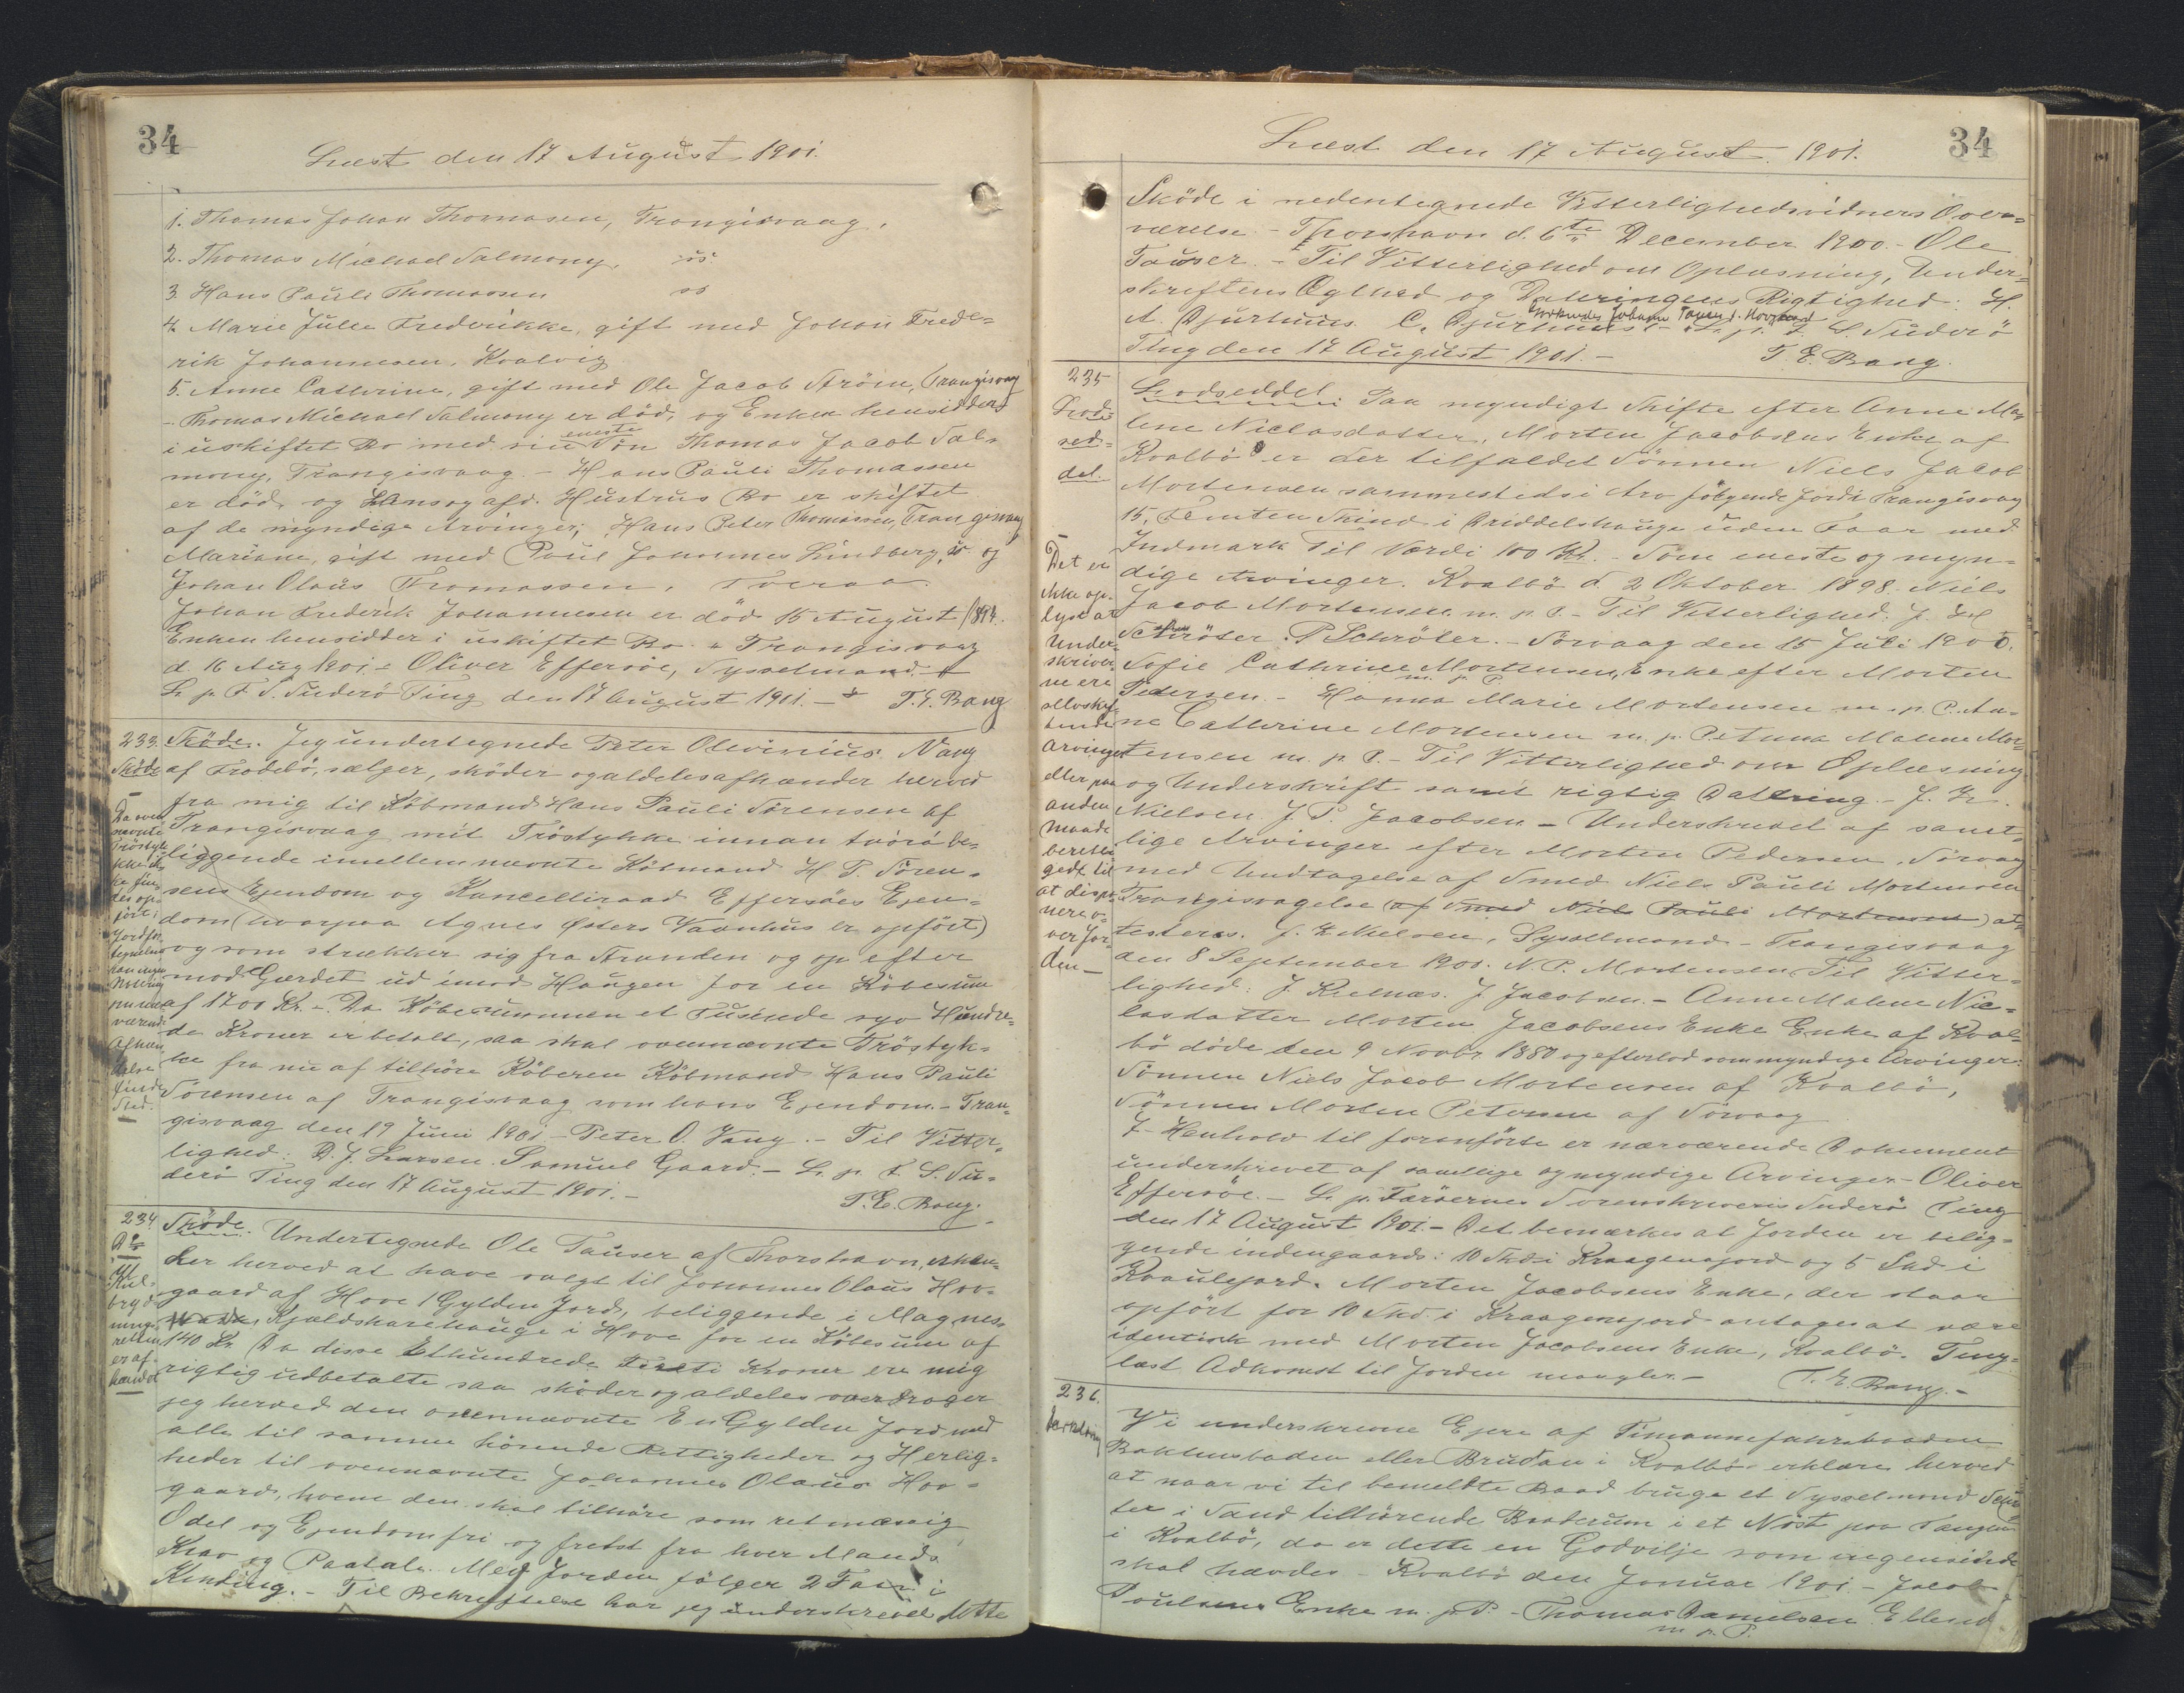 34
Læst den 17 August 1901.
1. Thomas Johan Thomasen, Trangisvaag.
2. Thomas Michael Salmony, ss.
3. Hans Pauli Thomassen ss
4. Marie Julie Frederikke, gift med Johan Frede=
rik Johannesen, Kvalvig
5. Anne Cathrine, gift med Ole Jacob Ström, Trangisvaag
- Thomas Michael Salmony er död, og Enken hensidder
i uskiftet Bo med sin eneste Sön Thomas Jacob Sal-
mony, Trangisvaag. - Hans Pauli Thomassen
er död og Hans og afd. Hustrus Bo er skiftet
af de myndige Arvinger, Hans Peter Thomassen, Trangisvaag
Mariane, gift med Poul Johannes Lindberg, ss og
Johan Olaus Thomassen, Tveraa.
Johan Frederik Johannesen er död 15 August 1894.
Enken hensidder i uskiftet Bo. - Trangisvaag
d. 16 Aug 1901 - Oliver Effersöe, Sysselmand. -
L. p. F. S. Suderö Ting den 17 August 1901. - T. E. Bang
233. Sköde. Jeg undertegnede Peter Olivinius Vang
Sköde af Frodebö, sælger, sköder og aldeles afhænder herved
fra mig til Köbmand Hans Pauli Sörensen af
Trangisvaag mit Tröstykke innan tvörá be-
liggende imellem nævnte Köbmand H. P. Sören-
sens Ejendom og Kancelliraad Effersöes Ejen=
dom (hvorpaa Agnes Østers Vaanhus er opfört)
og som strækker sig fra Stranden og op efter
mod Gærdet ud imod Haugen for en Köbesum
af 1700 Kr. - Da Köbesummen et Tusinde syv Hundre-
de Kroner er betalt, saa skal ovennævnte Tröstyk=
ke fra nu af tilhöre Köberen Köbmand Hans Pauli
Sörensen af Trangisvaag som hans Ejendom. - Tran=
gisvaag den 19 Juni 1901 - Peter O. Vang. - Til Vitter-
lighed: D. J. Larsen. Samuel Gaard. - L. p. F. S. Su-
derö Ting den 17 August 1901. -
T. E. Bang.
Da oven
nævnte
Tröstyk
kke ik
ke fin-
des op-
fört i
Jordfor
tegnelsen
kan ingen
Notering
om nær
værende
Afhæn-
delse
finde
Sted.
234. Sköde. Undertegnede Ole Tauser af Thorshavn, erken-
der herved at have solgt til Johannes Olaus Hov-
gaard af Hove 1 Gylden Jord, beliggende i Magnes-
Kjældskarehauge i Hove for en Köbesum af
140 Kr. Da disse Ethundrede Fireti Kroner ere mig
rigtig udbetalte saa sköder og aldeles overdrager
jeg herved den ovennævnte En Gylden Jord med
alle til samme hörende Rettigheder og Herlig=
heder til ovennævnte Johannes Olaus Hov=
gaard, hvem den skal tilhöre som retmæssig
Odel og Ejendom fri og frelst fra hver Mands
Krav og Paatale. Med Jorden fölger 2 Faar i
Kinding. - Til Bekræftelse har jeg underskrevet dette
Do
Kul-
bryd
nings
retten
er af-
hændet
34
Læst den 17 August 1901.
Sköde i nedentegnede Vitterlighedsvidners Over=
værelse. - Thorshavn d. 6te December 1900. - Ole
Tauser. - Til Vitterlighed om Oplæsning, Under=
skriftens Ægthed og Dateringens Rigtighed: H.
A. Djurhuus. C. Djurhuus. - L. p. F. S. Suderö
Ting den 17 August 1901. - T. E. Bang.
235
Lods-
sed-
del.
Lodseddel: Paa myndigt Skifte efter Anne Ma-
lene Niclasdatter, Morten Jacobsens Enke af
Kvalbö er der tilfaldet Sönnen Niels Jacob
Mortensen sammesteds i Arv fölgende Jord i Trangisvaag
15, Femten Skind i Priddelshauge uden Faar med
Indmark til Værdi 100 Kr. - Som eneste og myn-
dige Arvinger. Kvalbö d. 2 Oktober 1898. Niels
Jacob Mortensen m. p. P. - Til Vitterlighed:
Schröter. P Schröter. - Sörvaag den 15 Juli 1900.
Sofie Cathrine Mortensen, Enke efter Morten
m. p. P.
Pedersen. - Hanna Marie Mortensen m. p. P. An-
ne Cathrine Mortensen m. p. P. Anna Malene Mor-
tensen m. p. P. - Til Vitterlighed om Oplæsning
og Underskrift samt rigtig Datering. -
Nielsen. J. P. Jacobsen - Underskrevet af samt-
lige Arvinger efter Morten Pedersen, Sörvaag
med Undtagelse af Smed Niels Pauli Mortensen
Trangisvaag (af Smed Niels Pauli Mortensen) at=
testeres. Nielsen, Sysselmand - Trangisvaag
den 8 September 1900. N. P. Mortensen. Til Vitter-
lighed: J. Kjelnæs. J Jacobsen. - Anne Malene Nic=
lasdatter Morten Jacobsens Enke Enke af Kval-
bö döde den 9 Novbr 1880 og efterlod som myndige Arvinger:
Sönnen Niels Jacob Mortensen af Kvalbö,
Sönnen Morten Petersen af Sörvaag
I Henhold til foranförte er nærværende Dokument
underskrevet af samtlige og myndige Arvinger - Oliver
Effersöe. - L. p. Færöernes Sorenskriveris Suderö Ting
den 17 August 1901. - Det bemærkes at Jorden er belig-
gende indengaards: 10 Skd i Kraagensjord og 5 Skd i
Morten Jacobsens Enke, der staar
opfört for 10 Skd i Kraagensjord antages at være
identisk med Morten Jacobsens Enke, Kvalbö. Ting=
læst Adkomst til Jorden mangler. - T. E. Bang. -
Det er
ikke op-
lyst at
Under-
skriver
ne ere
selvskif-
tende
Arvinger
eller paa
anden
Maade
beretti
gede til
at dispo-
nere o-
ver Jor-
den -
236.
Vi underskrevne Ejere af Timannefarsbaaden
eller i Kvalbö erklære herved
at naar vi til bemeldte Baad bruge et Sysselmand Schrö-
ter i Sand tilhörende Baaderum i et Nöst paa Tangen
i Kvalbö, da er dette en Godvilje som ingensinde
skal hævdes - Kvalbö den Januar 1901. - Jacob
Poulsens Enke m. p. P. - Thomas Danielsen
m. p. P.